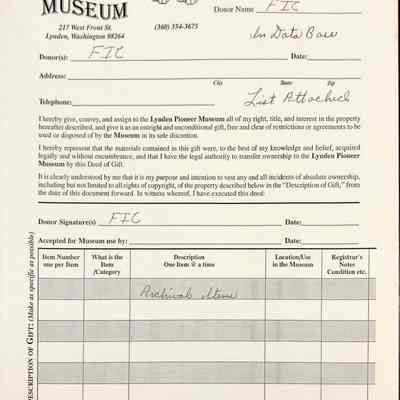 MUSEUM
217 West Front St.
Lynden, Washington 98264
(360) 354-3675
Donor Name FIC
In Data Base
Donor(s): FIC Date:
Address:
City State Zip
Telephone: List Attached
I hereby give, convey, and assign to the Lynden Pioneer Museum all of my right, title, and interest in the property
hereafter described, and give it as an outright and unconditional gift, free and clear of restrictions or agreements to be
used or disposed of by the Museum in its sole discretion.
I hereby represent that the materials contained in this gift were, to the best of my knowledge and belief, acquired
legally and without encumbrance, and that I have the legal authority to transfer ownership to the Lynden Pioneer
Museum by this Deed of Gift.
It is clearly understood by me that it is my purpose and intention to vest any and all incidents of absolute ownership,
including but not limited to all rights of copyright, of the property described below in the "Description of Gift," from the
date of this document forward. In witness whereof, I have executed this deed:
Donor Signature(s) FIC Date:
Accepted for Museum use by: Date:
Item Number one per Item
What is the Item /Category
Description One Item @ a time
Location/Use in the Museum
Registrar's Notes Condition etc.
Archival Items
DESCRIPTION OF GIFT: (Make as specific as possible)